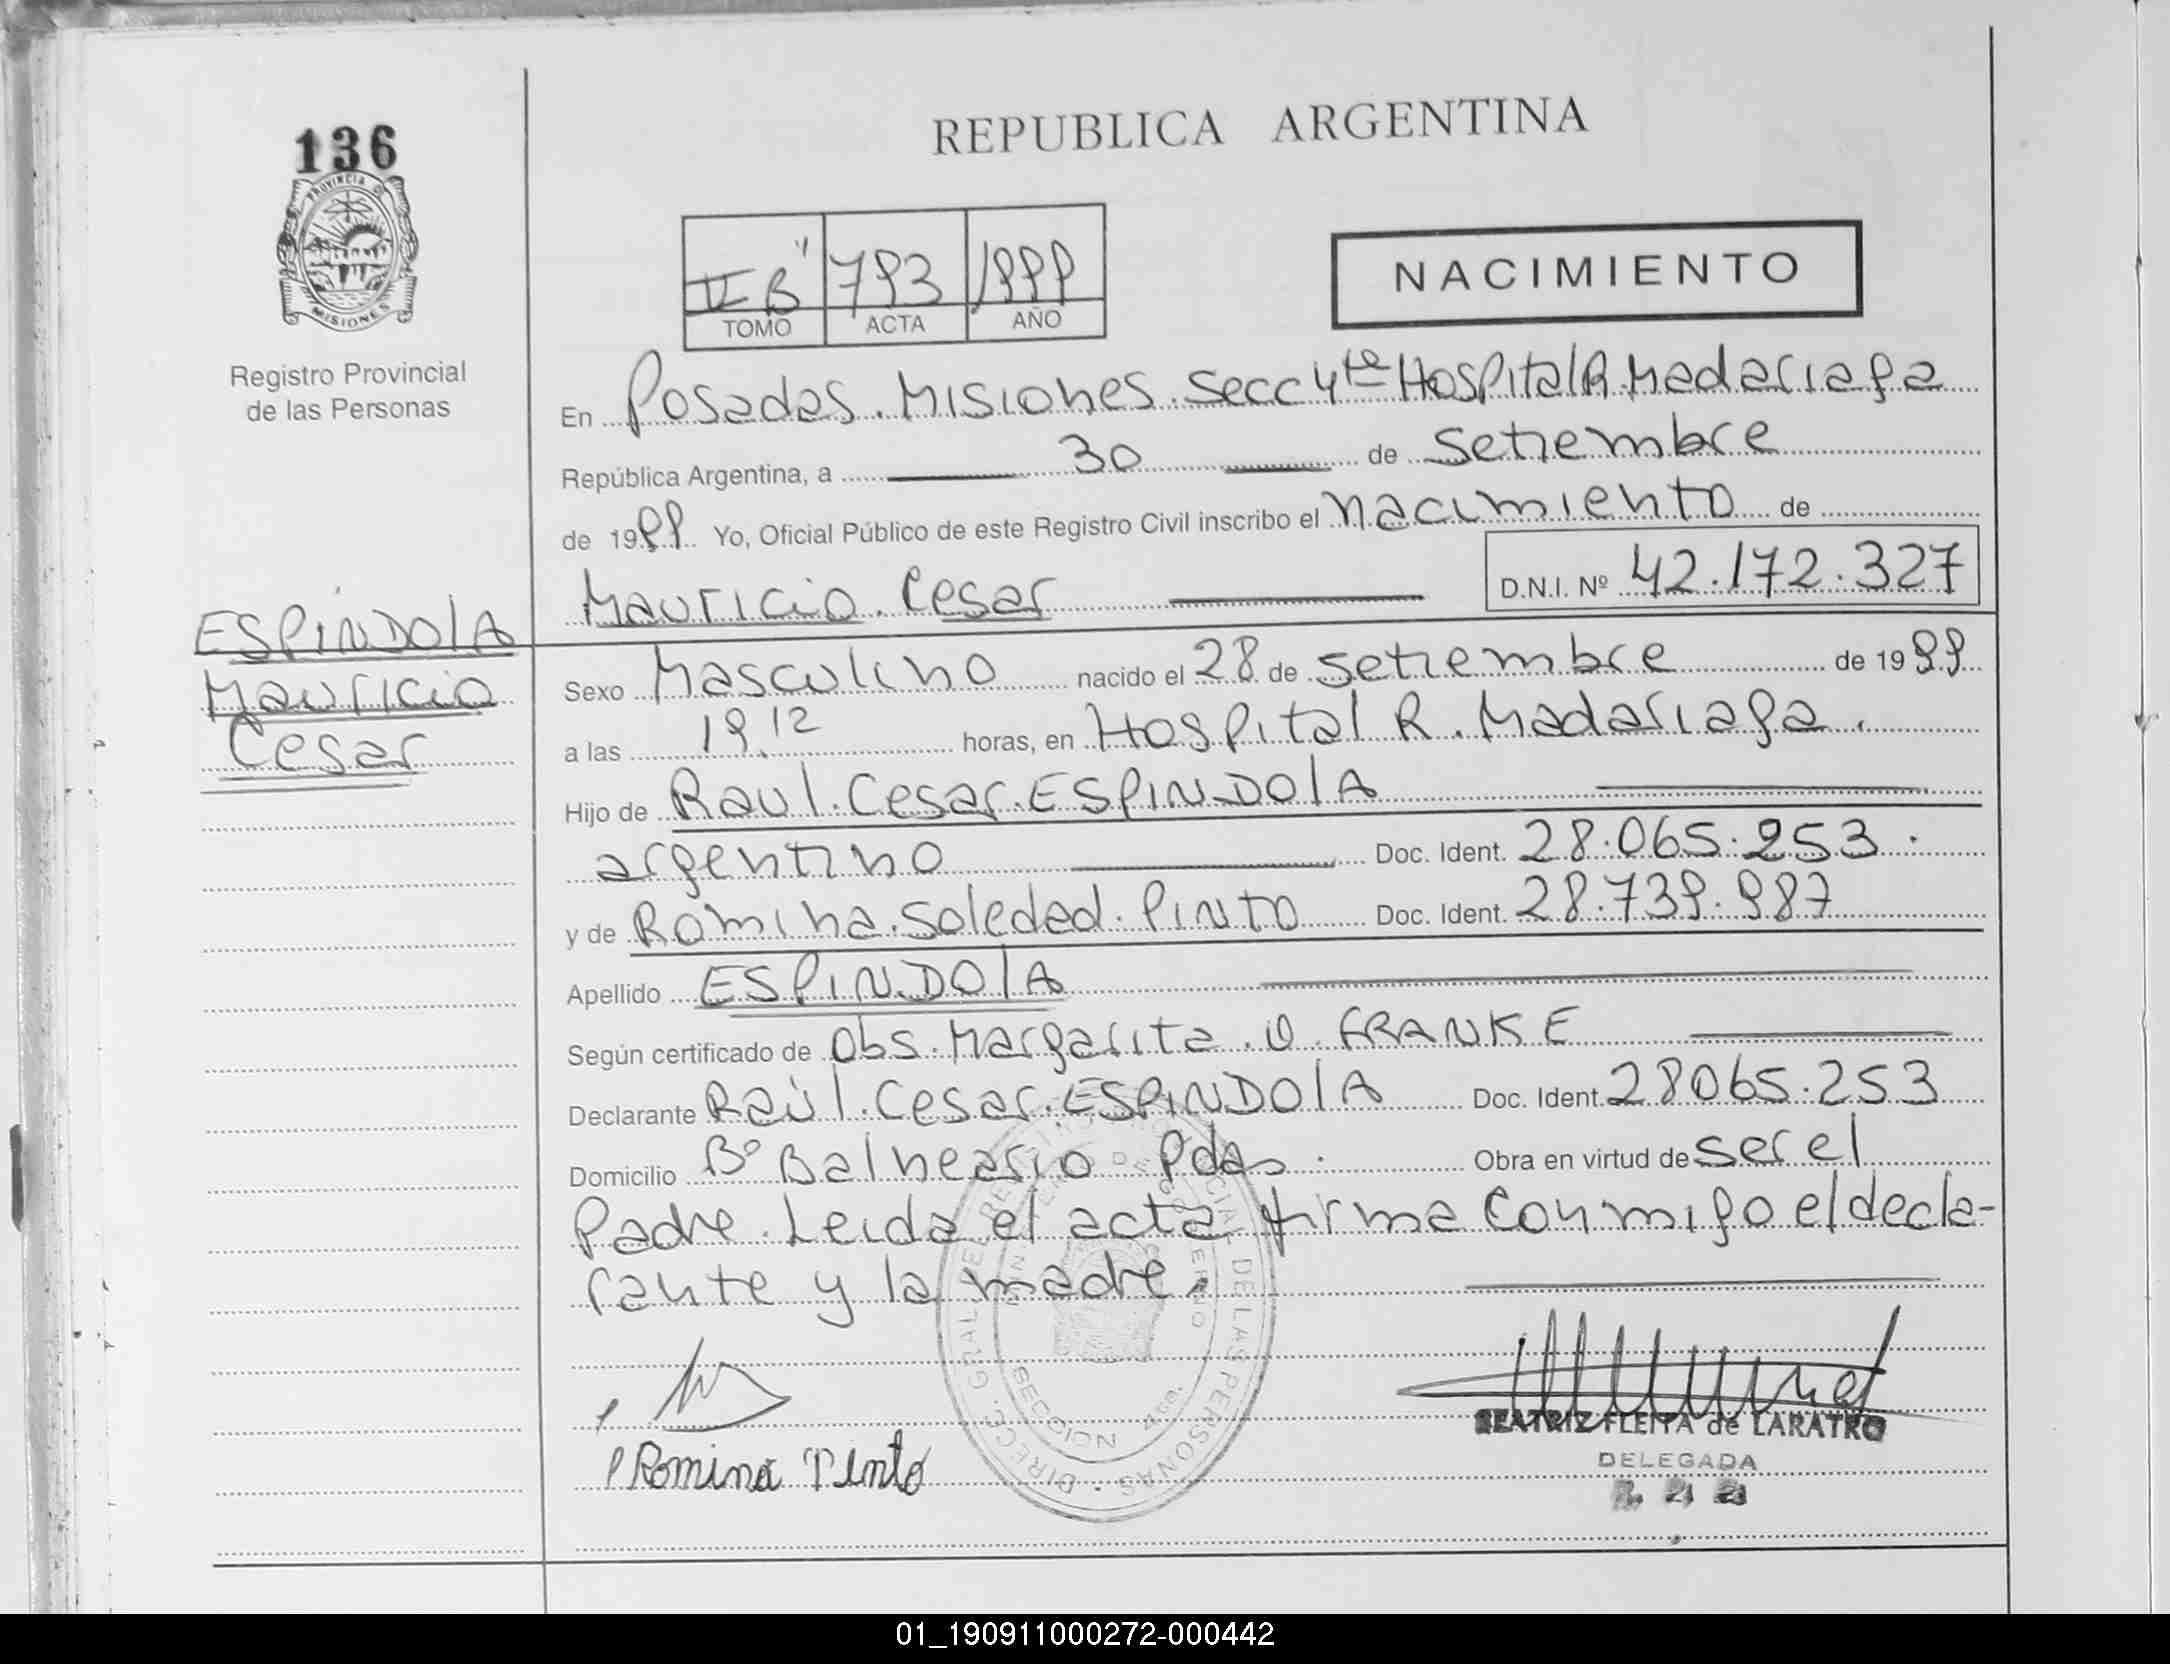 136
PROVINCIA D
MISIONES
Registro Provincial
de las Personas
ESPINDOLA
Mauricio
Cesar
REPUBLICA ARGENTINA
II B" 793 1999
TOMO ACTA AÑO
NACIMIENTO
En Posadas. Misiones. Secc 4ta Hospital R. Madariaga
República Argentina, a 30 de Setiembre
de 1999 Yo, Oficial Público de este Registro Civil inscribo el nacimiento de
Mauricio. Cesar D.N.I. Nº 42.172.327
Sexo Masculino nacido el 28 de Setiembre de 1999
a las 19.12 horas, en Hospital R. Madariaga.
Hijo de Raul. Cesar. ESPINDOLA
argentino Doc. Ident. 28.065.253.
y de Romina. Soledad. PINTO Doc. Ident. 28.739.987
Apellido ESPINDOLA
Según certificado de Obs. Margarita. O. FRANKE
Declarante Raúl. Cesar. ESPINDOLA Doc. Ident. 28065.253
Domicilio Bº Balneario Pdas. Obra en virtud de ser el
Padre. Leida el acta firma conmigo el decla-
rante y la madre.
DIREC. GRAL. DE LAS PERSONAS
SECCION 4ta.
Romina Pinto
BEATRIZ FLEITA de LARATRO
DELEGADA
01_190911000272-000442